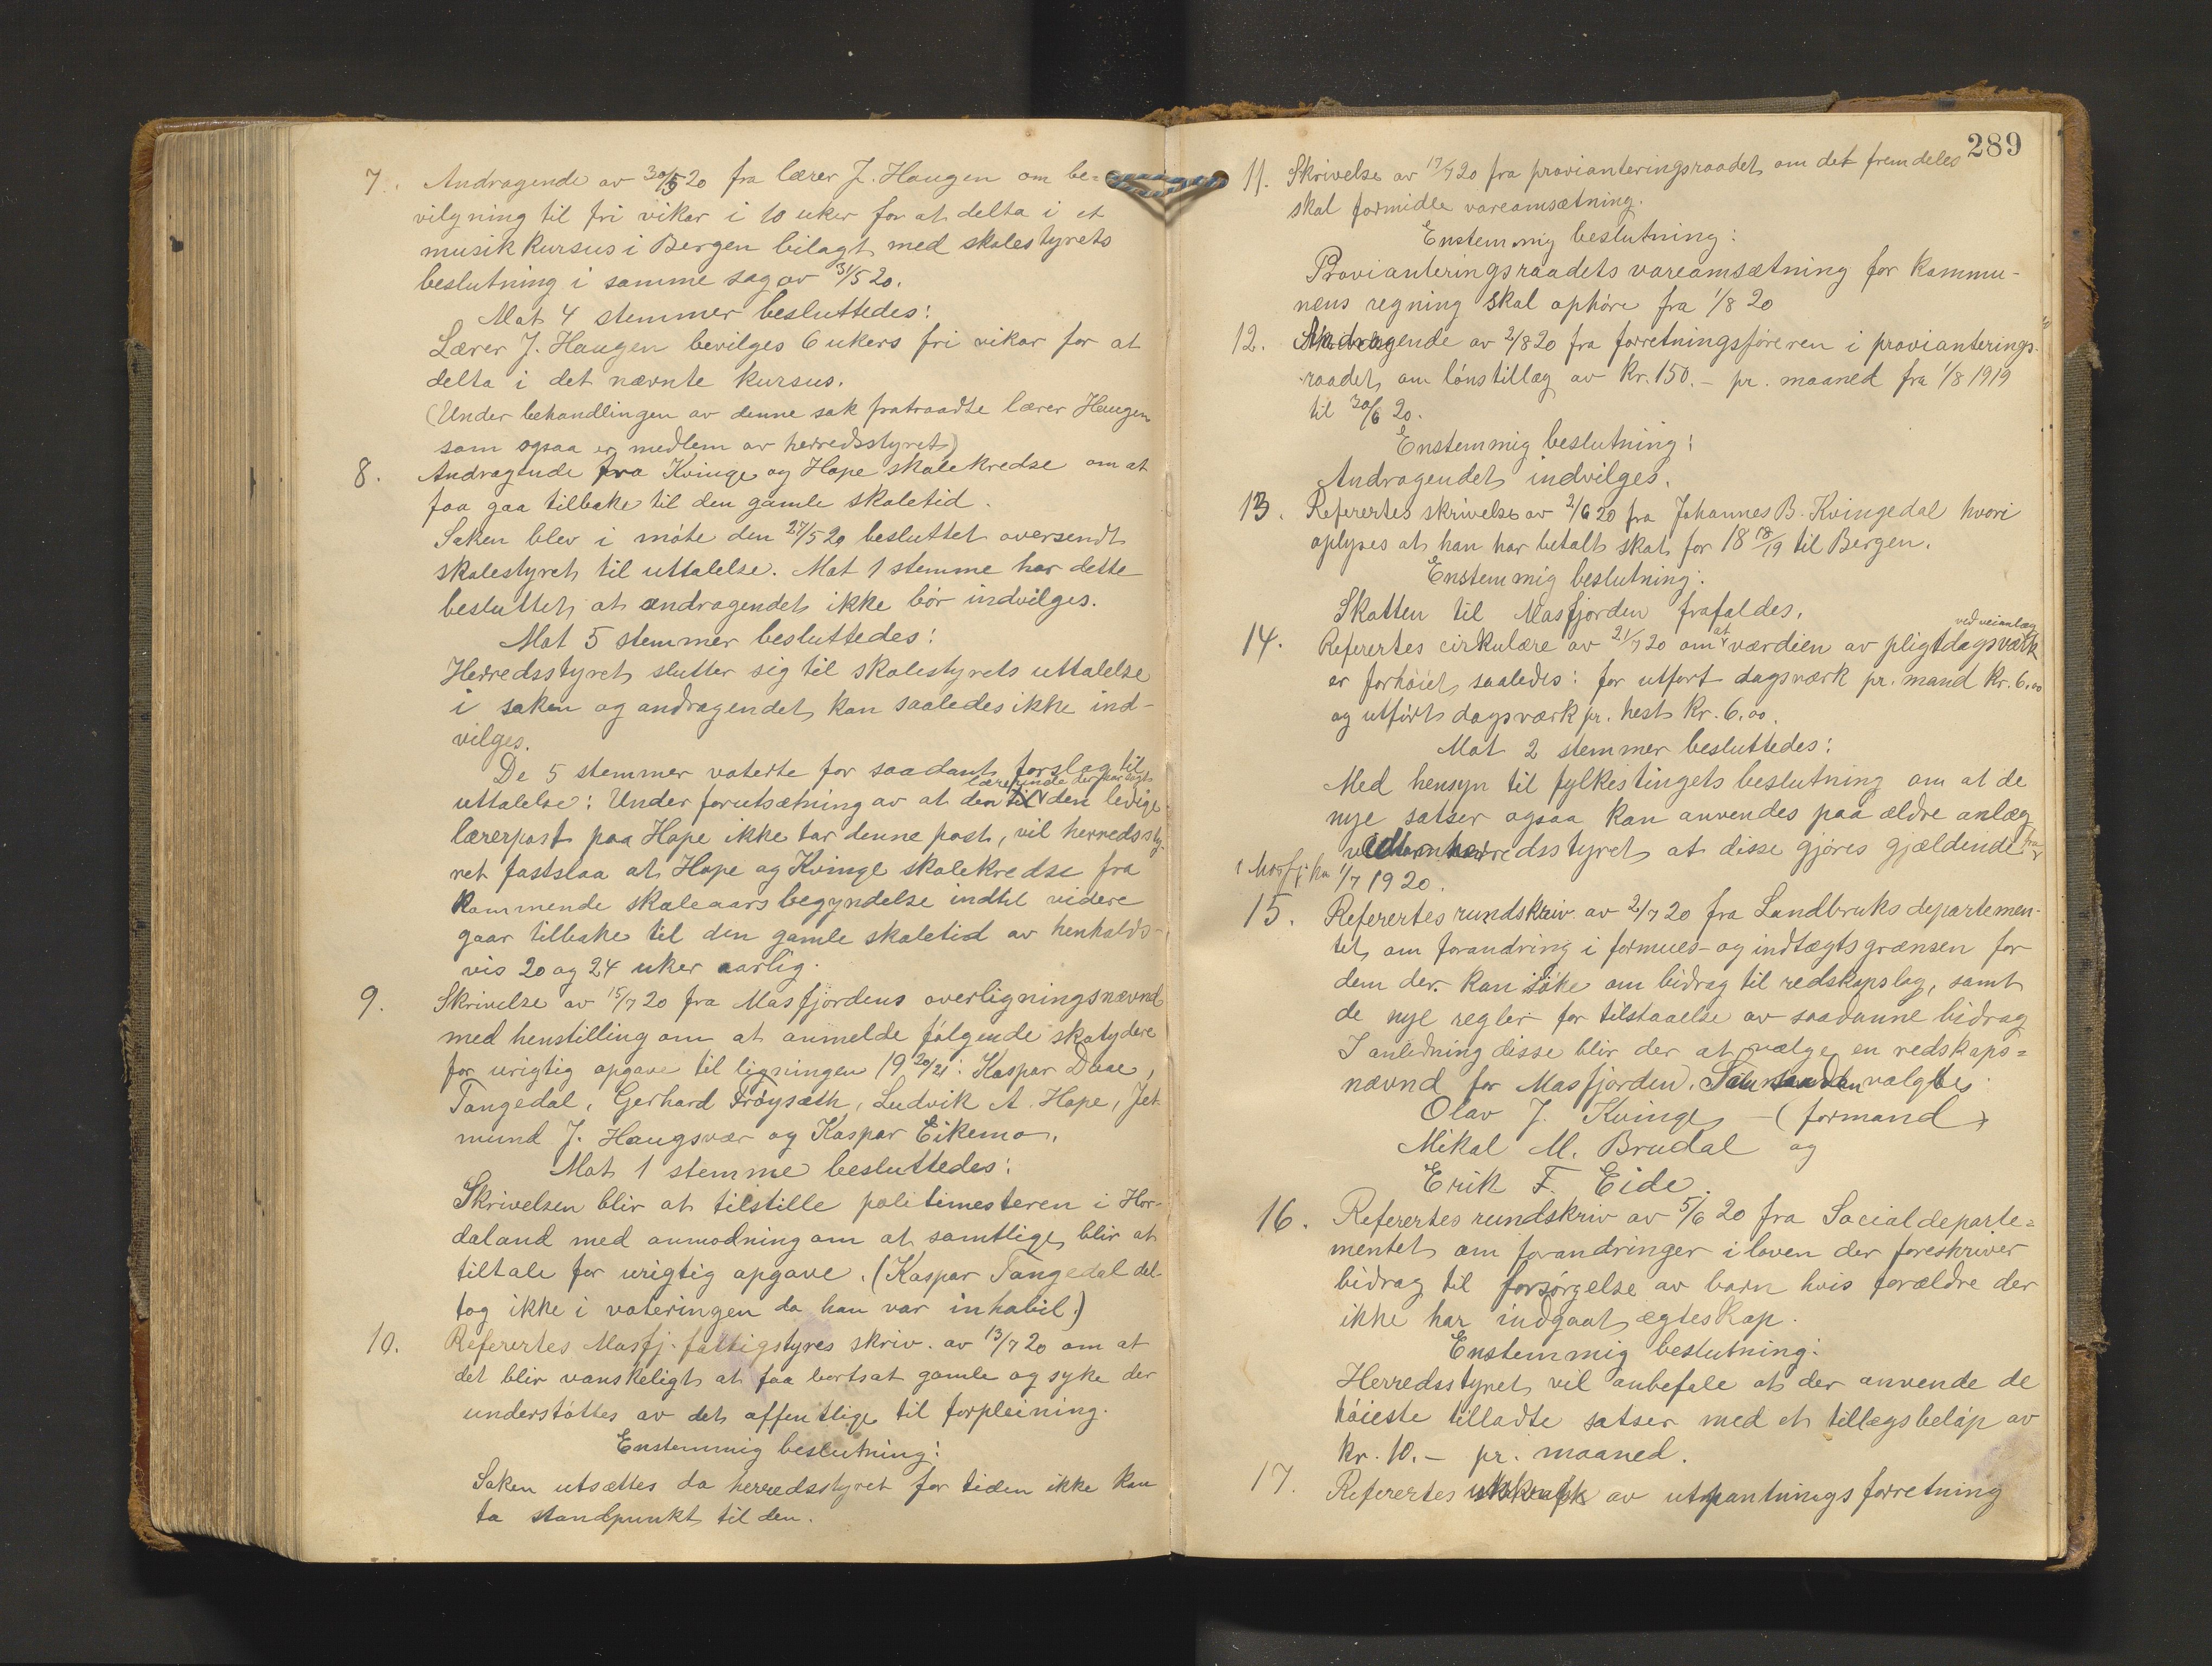 7. Andragende av 30/5 20 fra lærer J. Haugen om be-
vilgning til fri vikar i 10 uker for at delta i et
musikkursus i Bergen bilagt med skolestyrets
beslutning i samme sag av 31/5 20.
Mot 4 stemmer besluttedes:
Lærer J. Haugen bevilges 6 ukers fri vikar for at
delta i det nævnte kursus.
(Under behandlingen av denne sak fratraadte lærer Haugen
som ogsaa er medlem av herredsstyret)
8. Andragende fra Kvinge og Hope skolekredse om at
faa gaa tilbake til den gamle skoletid.
Saken blev i møte den 27/5 20 besluttet oversendt
skolestyret til uttalelse. Mot 1 stemme har dette
besluttet at andragendet ikke bør indvilges.
Mot 5 stemmer besluttedes:
Herredsstyret slutter sig til skolestyrets uttalelse
i saken og andragendet kan saaledes ikke ind-
vilges.
De 5 stemmer voterte for saadant forslag til
lærerinde der har søgt
uttalelse: Under forutsætning av at den til den ledige
lærerpost paa Hope ikke tar denne post, vil herredssty-
ret fastslaa at Hope og Kvinge skolekredse fra
kommende skoleaars begyndelse indtil videre
gaar tilbake til den gamle skoletid av henholds-
vis 20 og 24 uker aarlig.
9. Skrivelse av 15/7 20 fra Masfjordens overligningsnævnd
med henstilling om at anmelde følgende skatydere
for urigtig opgave til ligningen 1920/21: Kaspar Daae,
Tangedal, Gerhard Frøysæth, Ludvik A. Hope, Jet-
mund J. Haugsvær og Kaspar Eikemo.
Mot 1 stemme besluttedes:
Skrivelsen blir at tilstille politimesteren i Hor-
daland med anmodning om at samtlige blir at
tiltale for urigtig opgave. (Kaspar Tangedal del-
tog ikke i voteringen da han var inhabil.)
10. Referertes Masfj. fattigstyres skriv. av 13/7 20 om at
det blir vanskeligt at faa bortsat gamle og syke der
understøttes av det offentlige til forpleining.
Enstemmig beslutning:
Saken utsættes da herredsstyret for tiden ikke kan
ta standpunkt til den.
289
11. Skrivelse av 17/7 20 fra provianteringsraadet om det fremdeles
skal formidle vareomsætning.
Enstemmig beslutning:
Provianteringsraadets vareomsætning for kommu-
nens regning skal ophøre fra 1/8 20
12. Andragende av 2/8 20 fra forretningsføreren i provianterings-
raadet om lønstillæg av kr. 150.- pr. maaned fra 1/8 1919
til 30/6 20.
Enstemmig beslutning:
Andragendet indvilges.
13. Referertes skrivelse av 2/6 20 fra Johannes B. Kvingedal hvori
oplyses at han har betalt skat for 18 18/19 til Bergen.
Enstemmig beslutning:
Skatten til Masfjorden frafaldes.
ved veianlæg
14. Referertes cirkulære av 21/7 20 om at værdien av pligtdagsværk
er forhøiet saaledes: for utført dagsværk pr. mand kr. 6.00
og utført dagsværk pr. hest kr. 6.00.
Mot 2 stemmer besluttedes:
Med hensyn til fylkestingets beslutning om at de
nye satser ogsaa kan anvendes paa ældre anlæg
vedtar herredsstyret at disse gjøres gjældende fra
1/7 1920.
15. Referertes rundskriv av 2/7 20 fra Landbruksdepartemen-
tet om forandring i formues- og indtægtsgrænsen for
dem der kan søke om bidrag til redskapslag, samt
de nye regler for tilstaaelse av saadanne bidrag
I anledning disse blir der at vælge en redskaps=
nævnd for Masfjorden. Som saadan valgtes
Olav J. Kvinge (formand)
Mikal M. Brudal og
Erik F. Eide.
16. Referertes rundskriv av 5/6 20 fra Socialdeparte=
mentet om forandringer i loven der foreskriver
bidrag til forsørgelse av barn hvis forældre der
ikke har indgaat egteskap.
Enstemmig beslutning:
Herredsstyret vil anbefale at der anvende de
høieste tilladte satser med et tillægsbeløp av
kr. 10.- pr. maaned.
17. Referertes utskrift av utpantningsforretning